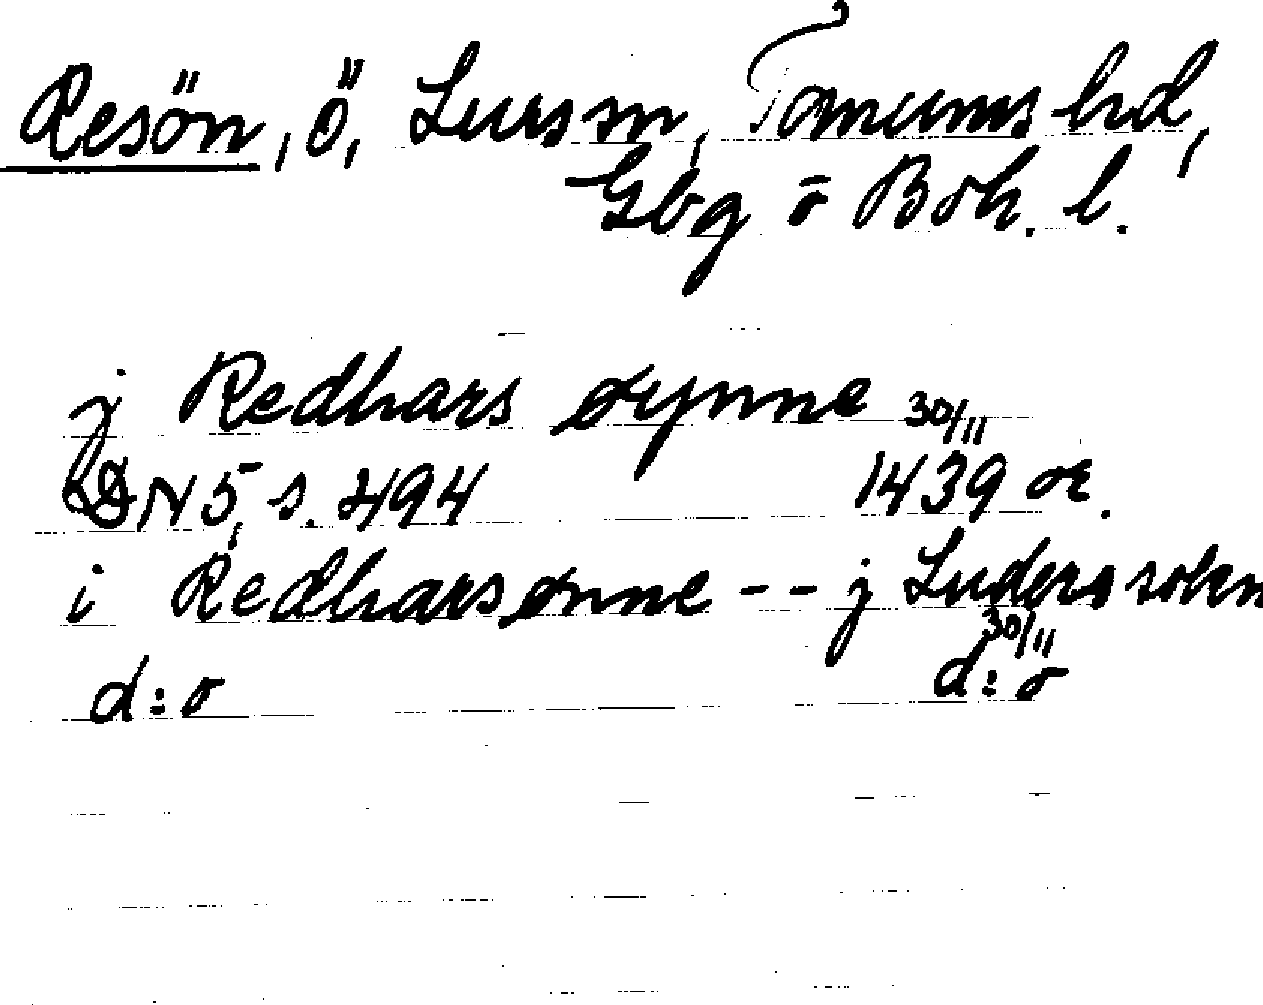 Resön, ö, Lurs sn, Tanums hd,
Gbg o Boh. l.
j Redhars øynne 30/11
DN 5, s. 494 1439 or.
i Redharsønne -- j Luders sokn
30/11
d:o d:o